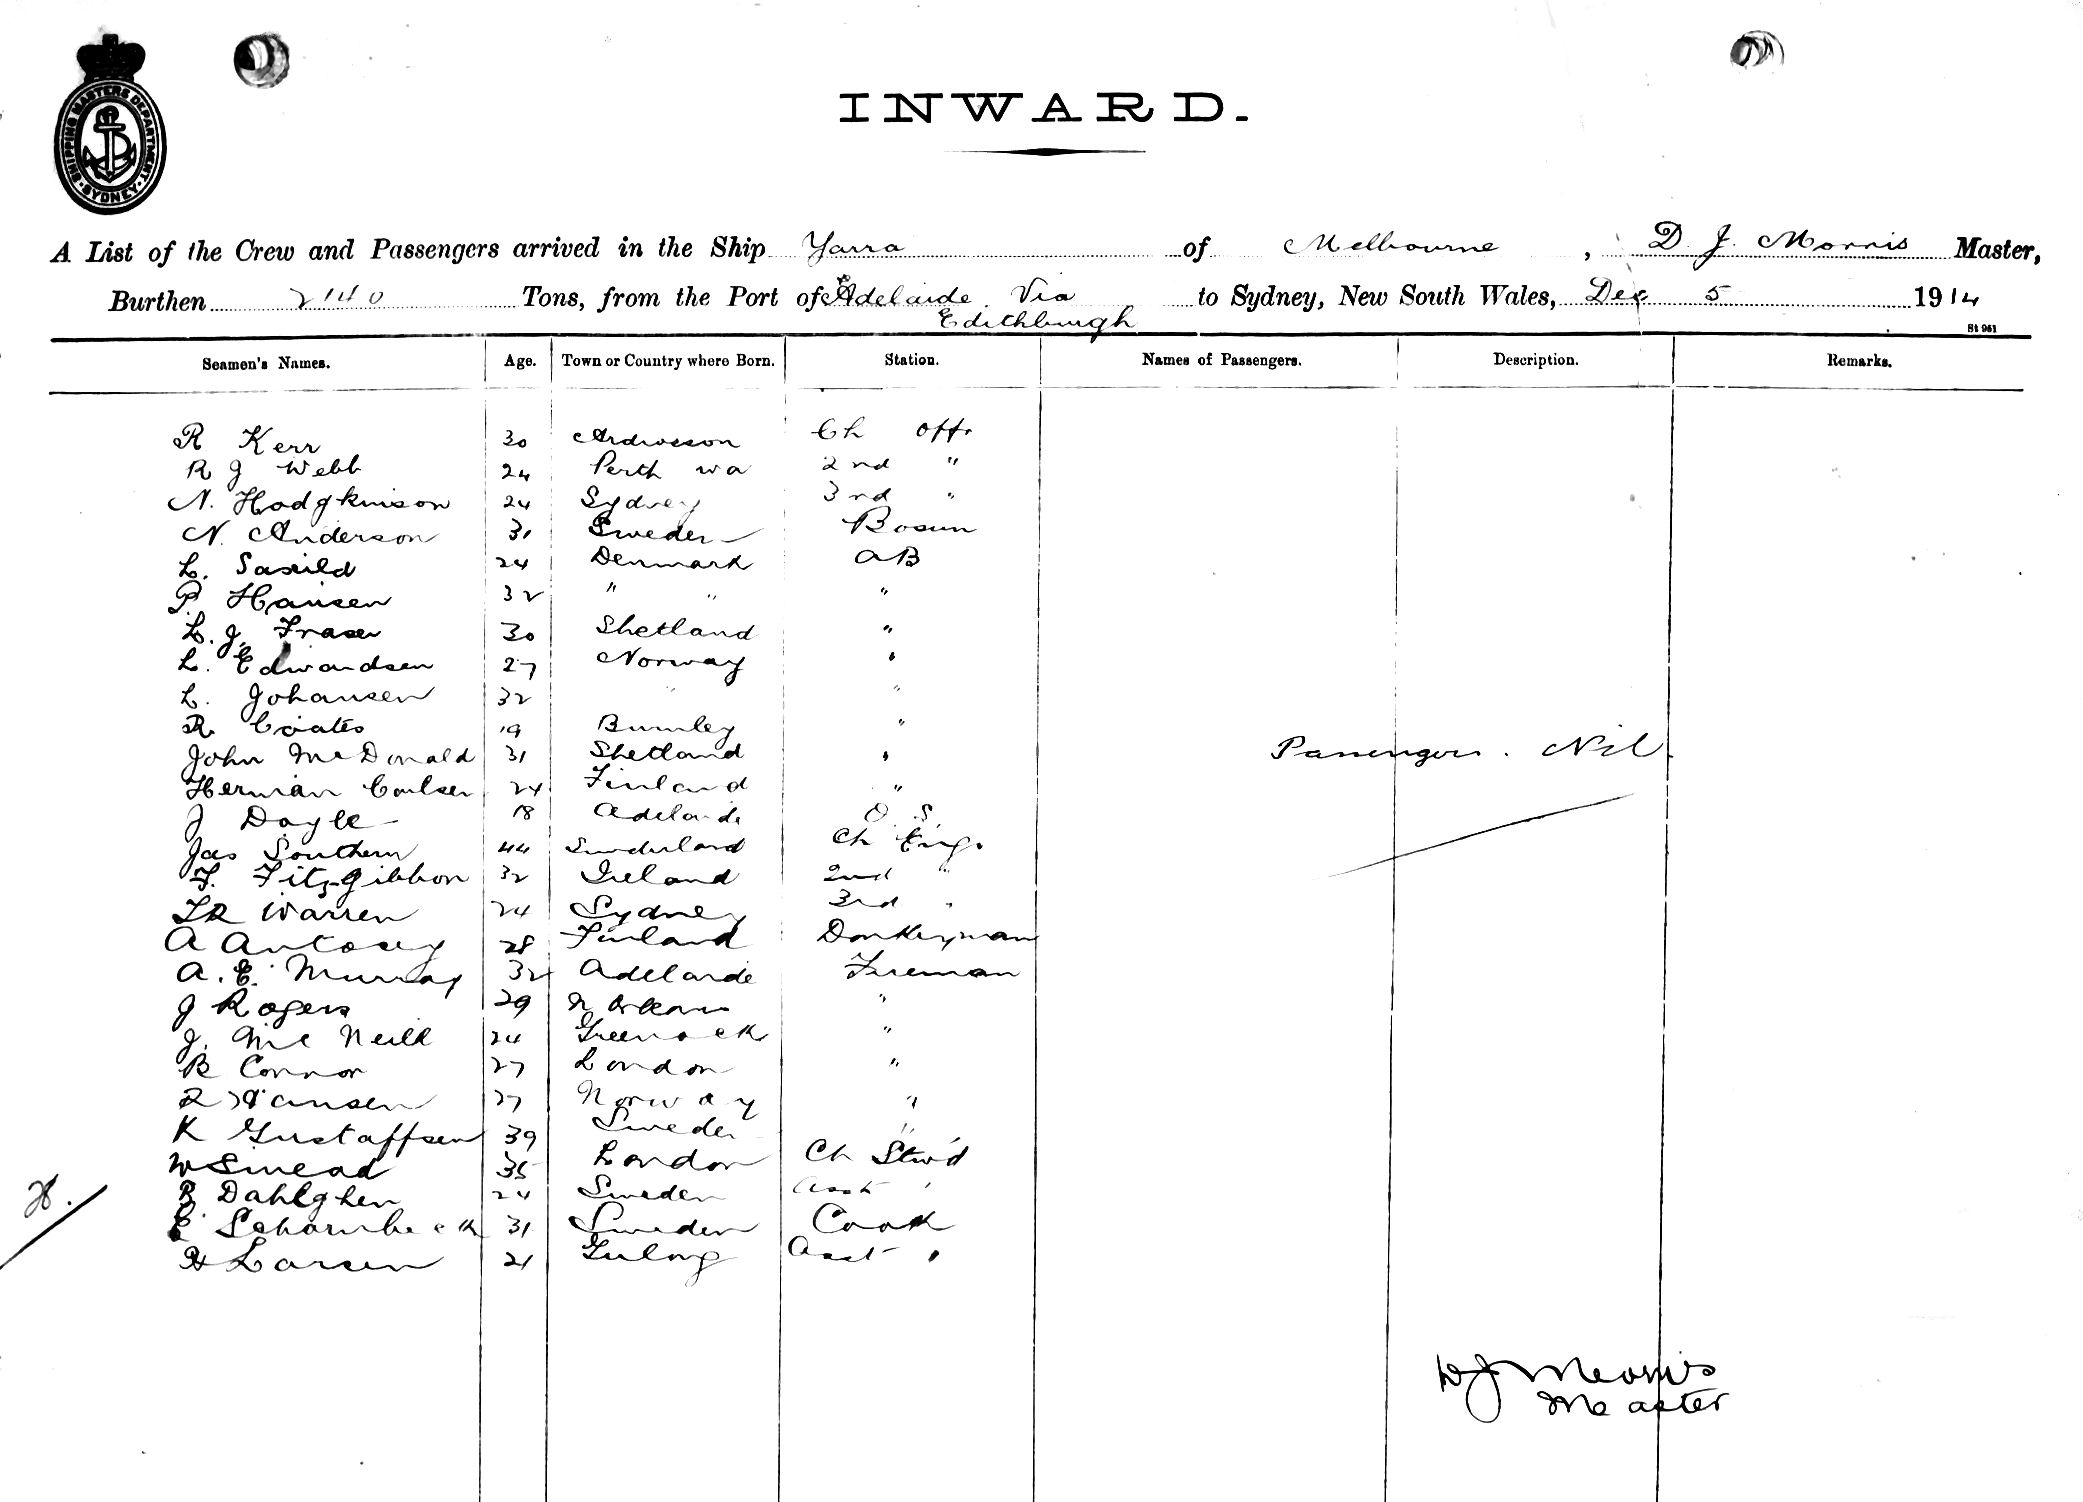 SHIPPING MASTERS DEPARTMENT · SYDNEY ·
INWARD.
A List of the Crew and Passengers arrived in the Ship Yarra of Melbourne, D. J. Morris Master,
Burthen 2140 Tons, from the Port of Adelaide Via Edithburgh to Sydney, New South Wales, Dec 5 1914
St 961
Seamen's Names. Age. Town or Country where Born. Station. Names of Passengers. Description. Remarks.
R Kerr 30 Ardrossan Ch Offr
R J Webb 24 Perth wa 2nd "
N. Hodgkinson 24 Sydney 3rd "
N. Anderson 31 Sweden Bosun
L. Saxild 24 Denmark AB
P. Hansen 32 " " "
L. J. Fraser 30 Shetland "
L. Edwardsen 27 Norway "
L. Johansen 32 " "
R. Coates 19 Burnley "
John McDonald 31 Shetland "
Passengers. Nil.
Herman Coulsen 24 Finland "
J Doyle 18 Adelaide O. S.
Jas Southern 44 Sunderland Ch Eng.
F. Fitz-Gibbon 32 Ireland 2nd "
Warren 24 Sydney 3rd "
A 28 Finland Donkeyman
A. E. Murray 32 Adelaide Fireman
J Rogers 29 N Orleans "
J. McNeill 24 Greenock "
B Connor 27 London "
Hansen 27 Norway "
K Gustaffsen 39 Sweden "
W Sinead 35 London Ch Stw'd
R Dahlghen 24 Sweden Asst "
E. Scharnbeck 31 Sweden Cook
H Larsen 21 Asst "
D J Morris
Master